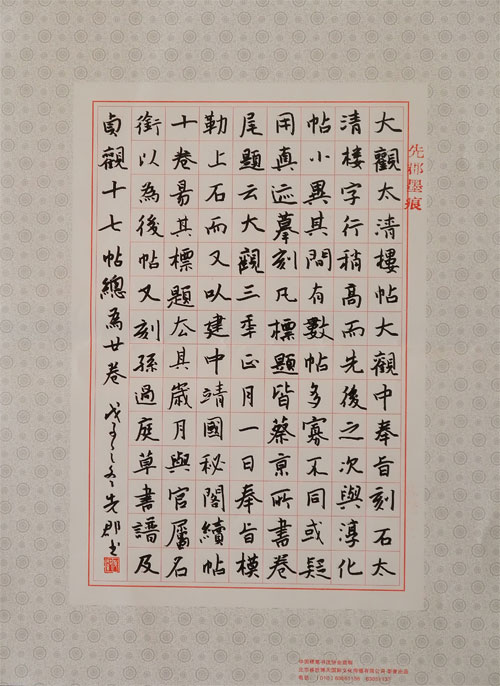 先郡墨痕
大觀太清樓帖大觀中奉旨刻石太
清樓字行稍高而先後之次與淳化
帖小異其間有數帖多寡不同或疑
用真迹摹刻凡標題皆蔡京所書卷
尾題云大觀三年正月一日奉旨模
勒上石而又以建中靖國秘閣續帖
十卷易其標題去其歲月與官屬名
銜以為後帖又刻孫過庭草書譜及
貞觀十七帖總為廿卷 戊子之冬先郡书
中国硬笔书法协会监制